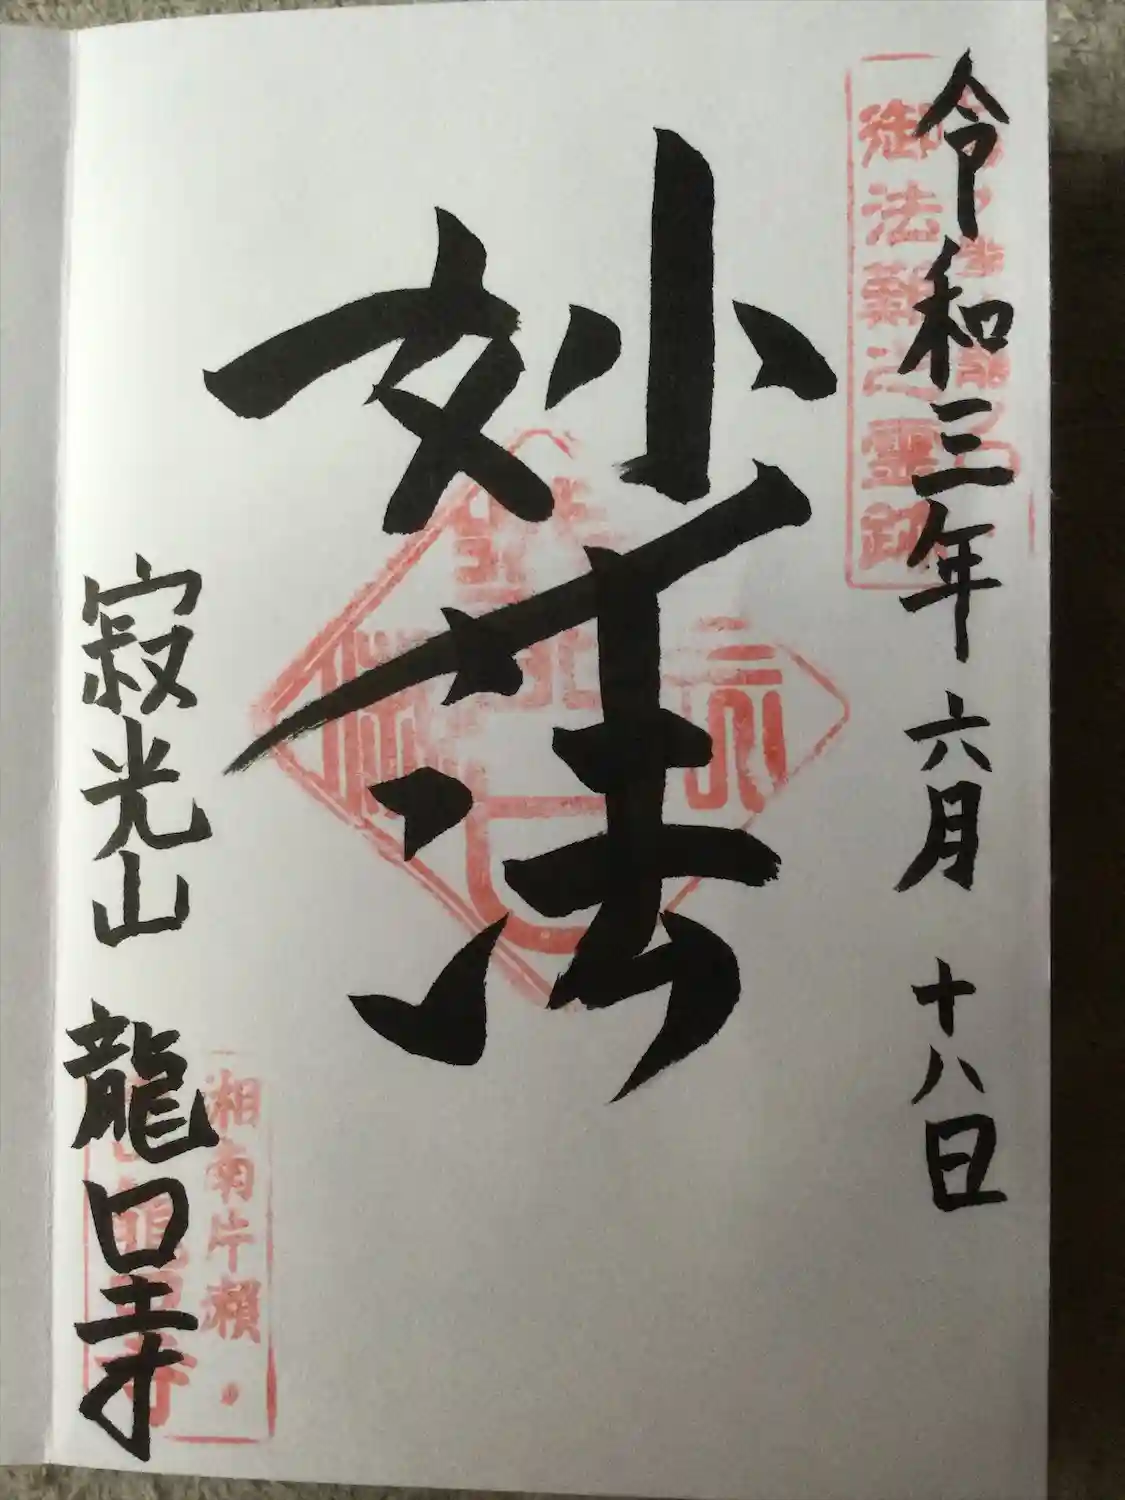 令和三年 六月 十八日
御法難之霊跡
妙法
寂光山 龍口寺
湘南片瀬